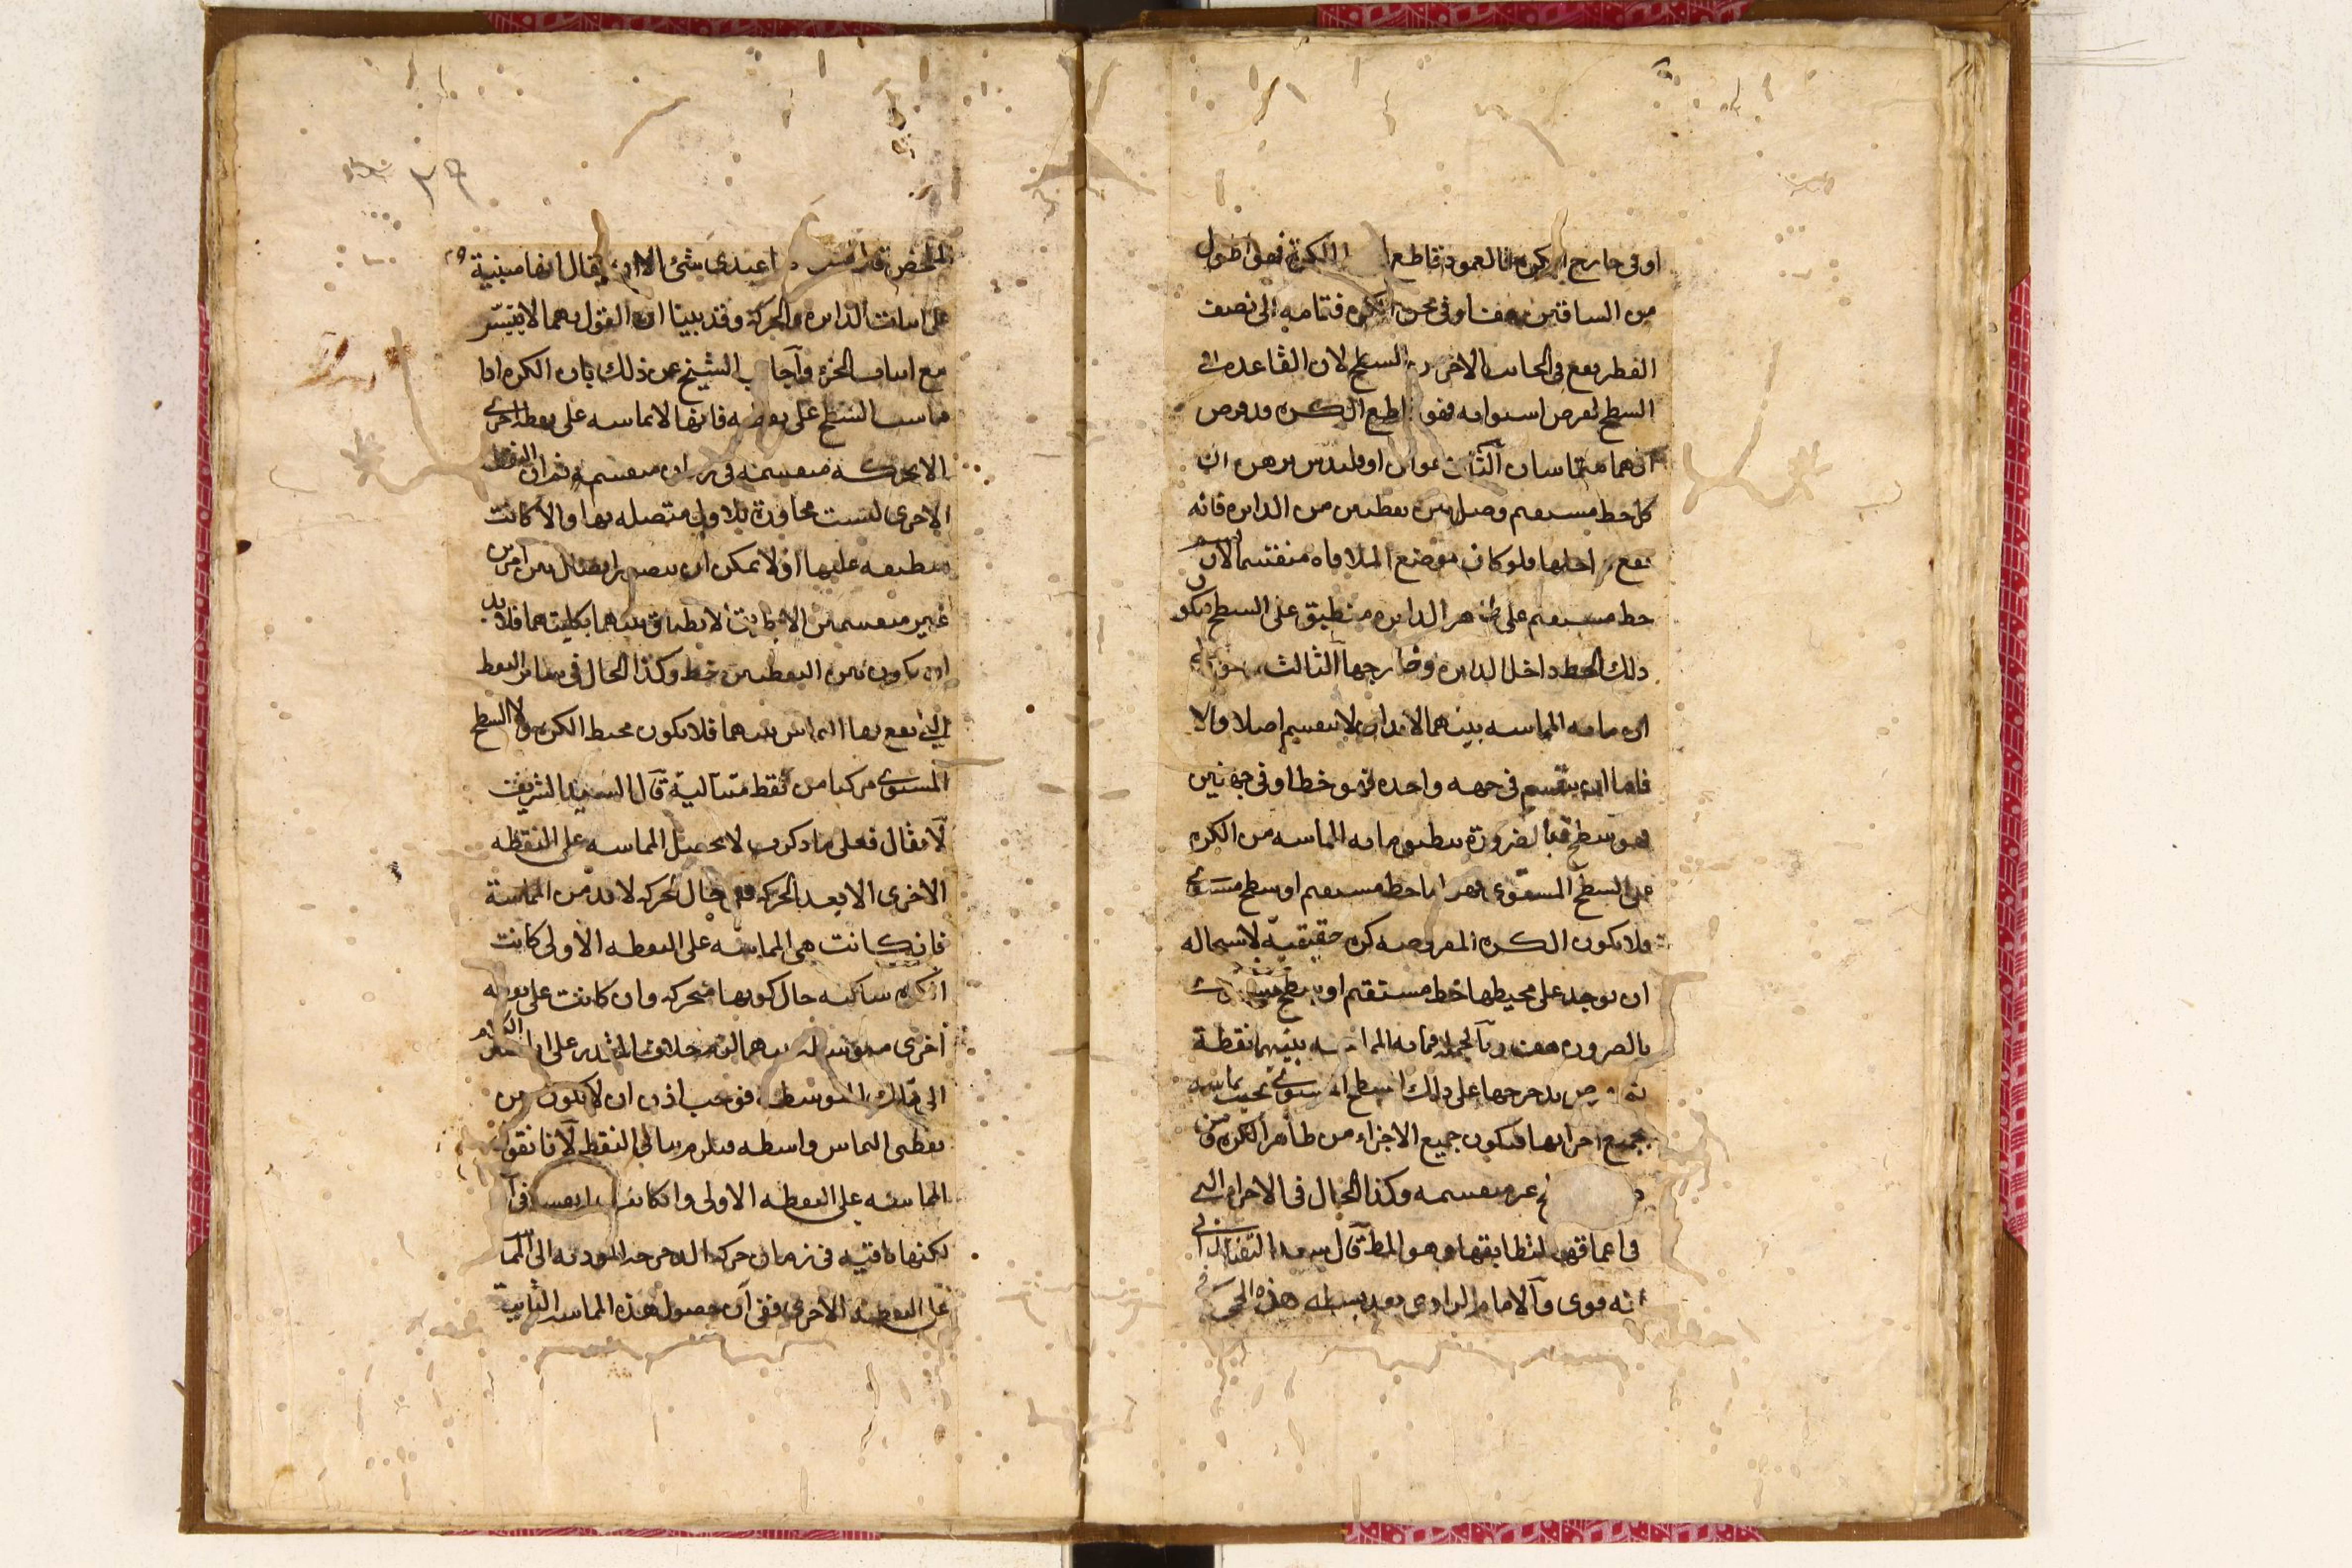 او فى خارج الكره فالعمود قاطعا الكرة فهى اطول
من الساقين هف او فى محيط الكره فتمامه الى نصف
القطر يقع فى الجانب الاخر من السطح لان القاعده فى
السطح لفرض استوائه فهو قاطع الكره وفرض
انهما متماسان الثانى اوقليدس برهن ان
كل خط مستقيم وصل بين نقطتين من الدايره فانه
يقع داخلها فلو كان موضع الملاقاه منقسما لارتسم
خط مستقيم على ظاهر الدايره منطبق على السطح فيكون
ذلك الخط داخل الدايره وخارجها الثالث
ان ما به المماسه بينهما لابد ان لا ينقسم اصلا والا
فاما ان ينقسم فى جهه واحده فهو خط او فى جهتين
فهو سطح فبالضرورة ينطبق ما به المماسه من الكره
على السطح المستوى فهو اما خط مستقيم او سطح مستوى
فلا يكون الكره المفروضه كره حقيقية لاستحاله
ان يوجد على محيطها خط مستقيم او سطح مستوى
بالضروره هف وبالجمله فما به المماسه بينهما نقطة
ثم نفرض تدحرجها على ذلك السطح المستوى بحيث يماسه
بجميع اجزائها فيكون جميع الاجزاء من ظاهر الكره ومن
غير منقسمه وكذا الحال فى الاجزاء التى
فى اعماقها لتطابقها وهو المط قال سعد التفتازانى
انه قوى والامام الرازى بعد بسطه هذه الحجه فى
الملخص قال عندى شئ الا ان يقال انها مبنية
على اثبات الدايره والحركة وقد بينا ان القول بهما لا يتيسر
مع اثبات الجزء واجاب الشيخ عن ذلك بان الكره اذا
ماست السطح على نقطه فانها لا تماسه على نقطه اخرى
الا بحركه منقسمه فى زمان منقسم ثم ان النقطه
الاخرى ليست مجاورة للاولى متصله بها والا كانت
منطبقه عليها اذ لا يمكن ان يتصور اتصال بين امرين
غير منقسمين الا بحيث لا بطباق بينهما بكليتهما فلابد
ان يكون بين النقطتين خط وكذا الحال فى سائر النقط
التى يقع بها التماس بينهما فلا يكون محيط الكره ولا السطح
المستوى مركبا من نقط متتالية قال السيد الشريف
لا يقال فعلى ما ذكرت لا يحصل المماسه على النقطه
الاخرى الا بعد الحركه ففى حال الحركه لابد من المماسة
فان كانت هى المماسه على النقطه الاولى كانت
الكره ساكنه حال كونها متحركه وان كانت على نقطه
اخرى متوسطه بينهما لزم خلاف المقدر على ان الكلام
الى تلك المتوسطه فوجب اذن ان لا يكون بين
نقطتى التماس واسطه فيلزم تتالى النقط لانا نقول
المماسه على النقطه الاولى وان كانت فى آن
لكنها باقيه فى زمان حركه الدحرجه المودية الى المماسه
على النقطه الاخرى ففى آن حصول هذه المماسه الثانية